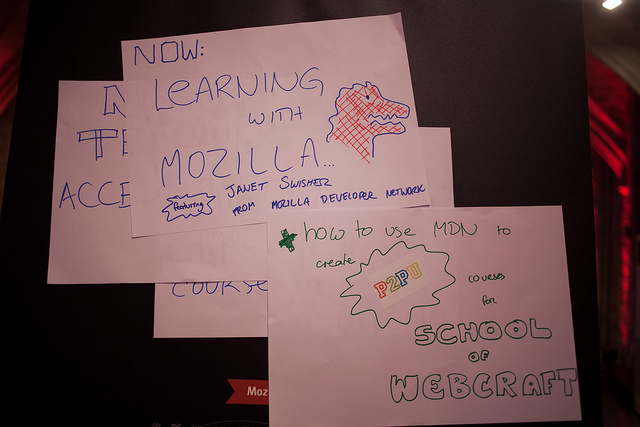 NOW:
LEARNING
WITH
MOZILLA...
featuring JANET SWISHER
FROM MOZILLA DEVELOPER NETWORK
ACCE
COURSE
+ how to use MDN to
create P2PU courses
for
SCHOOL
OF
WEBCRAFT
Moz